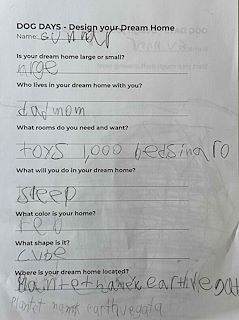 DOG DAYS - Design your Dream Home
Name: Gunnar
Is your dream home large or small?
lrge
Who lives in your dream home with you?
dad mom
What rooms do you need and want?
toys 1,000 beds in a ro
What will you do in your dream home?
sleep
What color is your home?
red
What shape is it?
cube
Where is your dream home located?